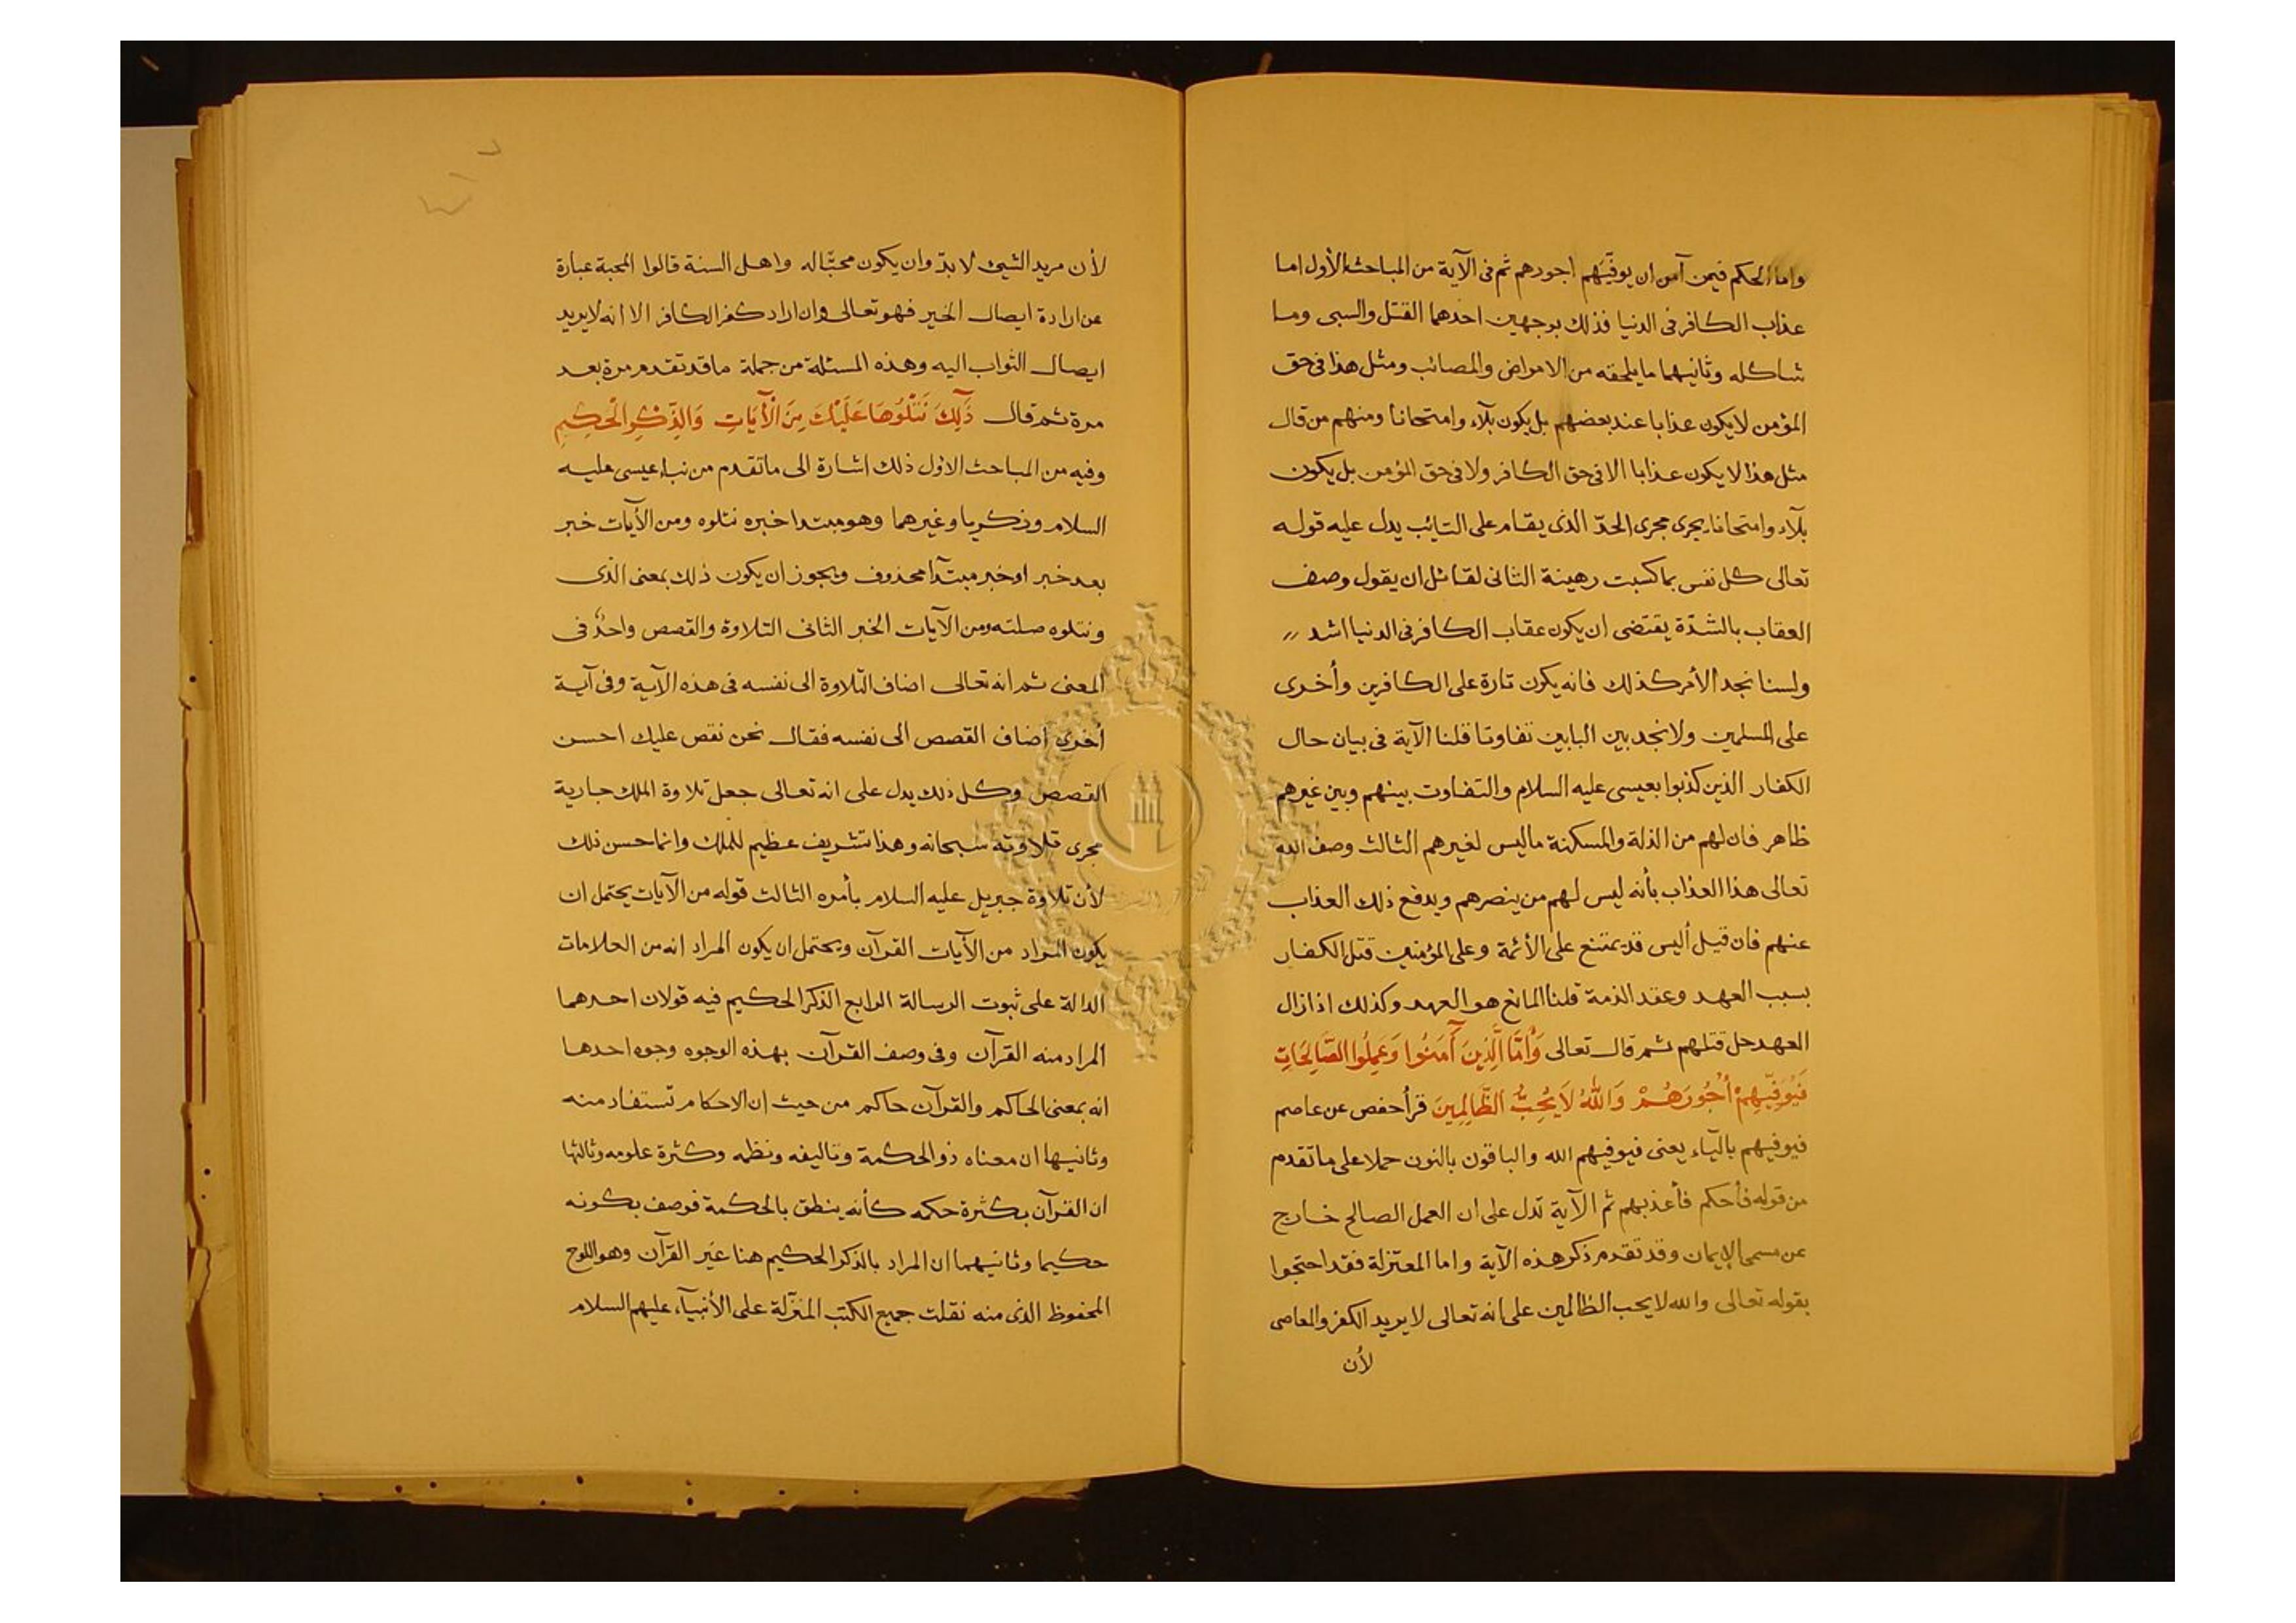 واما الحكم فيمن آمن ان يوفيهم اجورهم ثم فى الآية من المباحث الأول اما
عذاب الكافر فى الدنيا فذلك بوجهين احدهما القتل والسبى وما
شاكله وثانيهما ما يلحقه من الامراض والمصائب ومثل هذا فى حق
المؤمن لا يكون عذابا عند بعضهم بل يكون بلآء وامتحانا ومنهم من قال
مثل هذا لا يكون عذابا الا فى حق الكافر ولا فى حق المؤمن بل يكون
بلآء وامتحانا يجرى مجرى الحدّ الذى يقام على التايب يدل عليه قوله
تعالى كل نفس بما كسبت رهينة الثانى لقائل ان يقول وصف
العقاب بالشدّة يقتضى ان يكون عقاب الكافر فى الدنيا اشد
ولسنا نجد الأمر كذلك فانه يكون تارة على الكافرين وأخرى
على المسلمين ولا نجد بين البابين تفاوتا قلنا الآية فى بيان حال
الكفار الذين كذبوا بعيسى عليه السلام والتفاوت بينهم وبين غيرهم
ظاهر فان لهم من الذلة والمسكنة ما ليس لغيرهم الثالث وصف الله
تعالى هذا العذاب بأنه ليس لهم من ينصرهم ويدفع ذلك العذاب
عنهم فان قيل أليس قد يمتنع على الأئمة وعلى المؤمنين قتل الكفار
بسبب العهد وعقد الذمة قلنا المانع هو العهد وكذلك اذا زال
العهد حل قتلهم ثم قال تعالى وَأَمَّا الَّذِينَ آمَنُوا وَعَمِلُوا الصَّالِحَاتِ
فَيُوَفِّيهِمْ أُجُورَهُمْ وَاللَّهُ لَا يُحِبُّ الظَّالِمِينَ قرأ حفص عن عاصم
فيوفيهم باليآء يعنى فيوفيهم الله والباقون بالنون حملا على ما تقدم
من قوله فأحكم فأعذبهم ثم الآية تدل على ان العمل الصالح خارج
عن مسمى الإيمان وقد تقدم ذكر هذه الآية واما المعتزلة فقد احتجوا
بقوله تعالى والله لا يحب الظالمين على انه تعالى لا يريد الكفر والمعاصى
لأن
لأن مريد الشيئ لا بدّ وان يكون محبّا له واهل السنة قالوا المحبة عبارة
عن ارادة ايصال الخير فهو تعالى وان اراد كفر الكافر الا انه لا يريد
ايصال الثواب اليه وهذه المسئلة من جملة ما قد تقدم مرة بعد
مرة ثم قال ذَلِكَ نَتْلُوهَا عَلَيْكَ مِنَ الْآيَاتِ وَالذِّكْرِ الْحَكِيمِ
وفيه من المباحث الاول ذلك اشارة الى ما تقدم من نباء عيسى عليه
السلام وزكريا وغيرهما وهو مبتدا خبره نتلوه ومن الآيات خبر
بعد خبر او خبر مبتدآ محذوف ويجوز ان يكون ذلك بمعنى الذى
ونتلوه صلته ومن الآيات الخبر الثانى التلاوة والقصص واحدٌ فى
المعنى ثم انه تعالى اضاف التلاوة الى نفسه فى هذه الآية وفى آية
أخرى أضاف القصص الى نفسه فقال نحن نقص عليك احسن
القصص وكل ذلك يدل على انه تعالى جعل تلاوة الملك جارية
مجرى تلاوته سبحانه وهذا تشريف عظيم للملك وانما حسن ذلك
لأن تلاوة جبريل عليه السلام بأمره الثالث قوله من الآيات يحتمل ان
يكون المراد من الآيات القرآن ويحتمل ان يكون المراد انه من العلامات
الدالة على ثبوت الرسالة الرابع الذكر الحكيم فيه قولان احدهما
المراد منه القرآن وفى وصف القرآن بهذه الوجوه وجوه احدها
انه بمعنى الحاكم والقرآن حاكم من حيث ان الاحكام تستفاد منه
وثانيها ان معناه ذو الحكمة وتاليفه ونظمه وكثرة علومه وثالثها
ان القرآن بكثرة حكمه كأنه ينطق بالحكمة فوصف بكونه
حكيما وثانيهما ان المراد بالذكر الحكيم هنا غير القرآن وهو اللوح
المحفوظ الذى منه نقلت جميع الكتب المنزّلة على الأنبيآء عليهم السلام